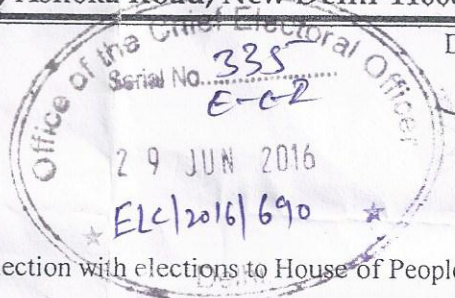 Ashoka Road, New Delhi
D
Office of the Chief Electoral Officer
Serial No. 335
E-C-2
29 JUN 2016
ELC/2016/690
ection with elections to House of People
Delhi